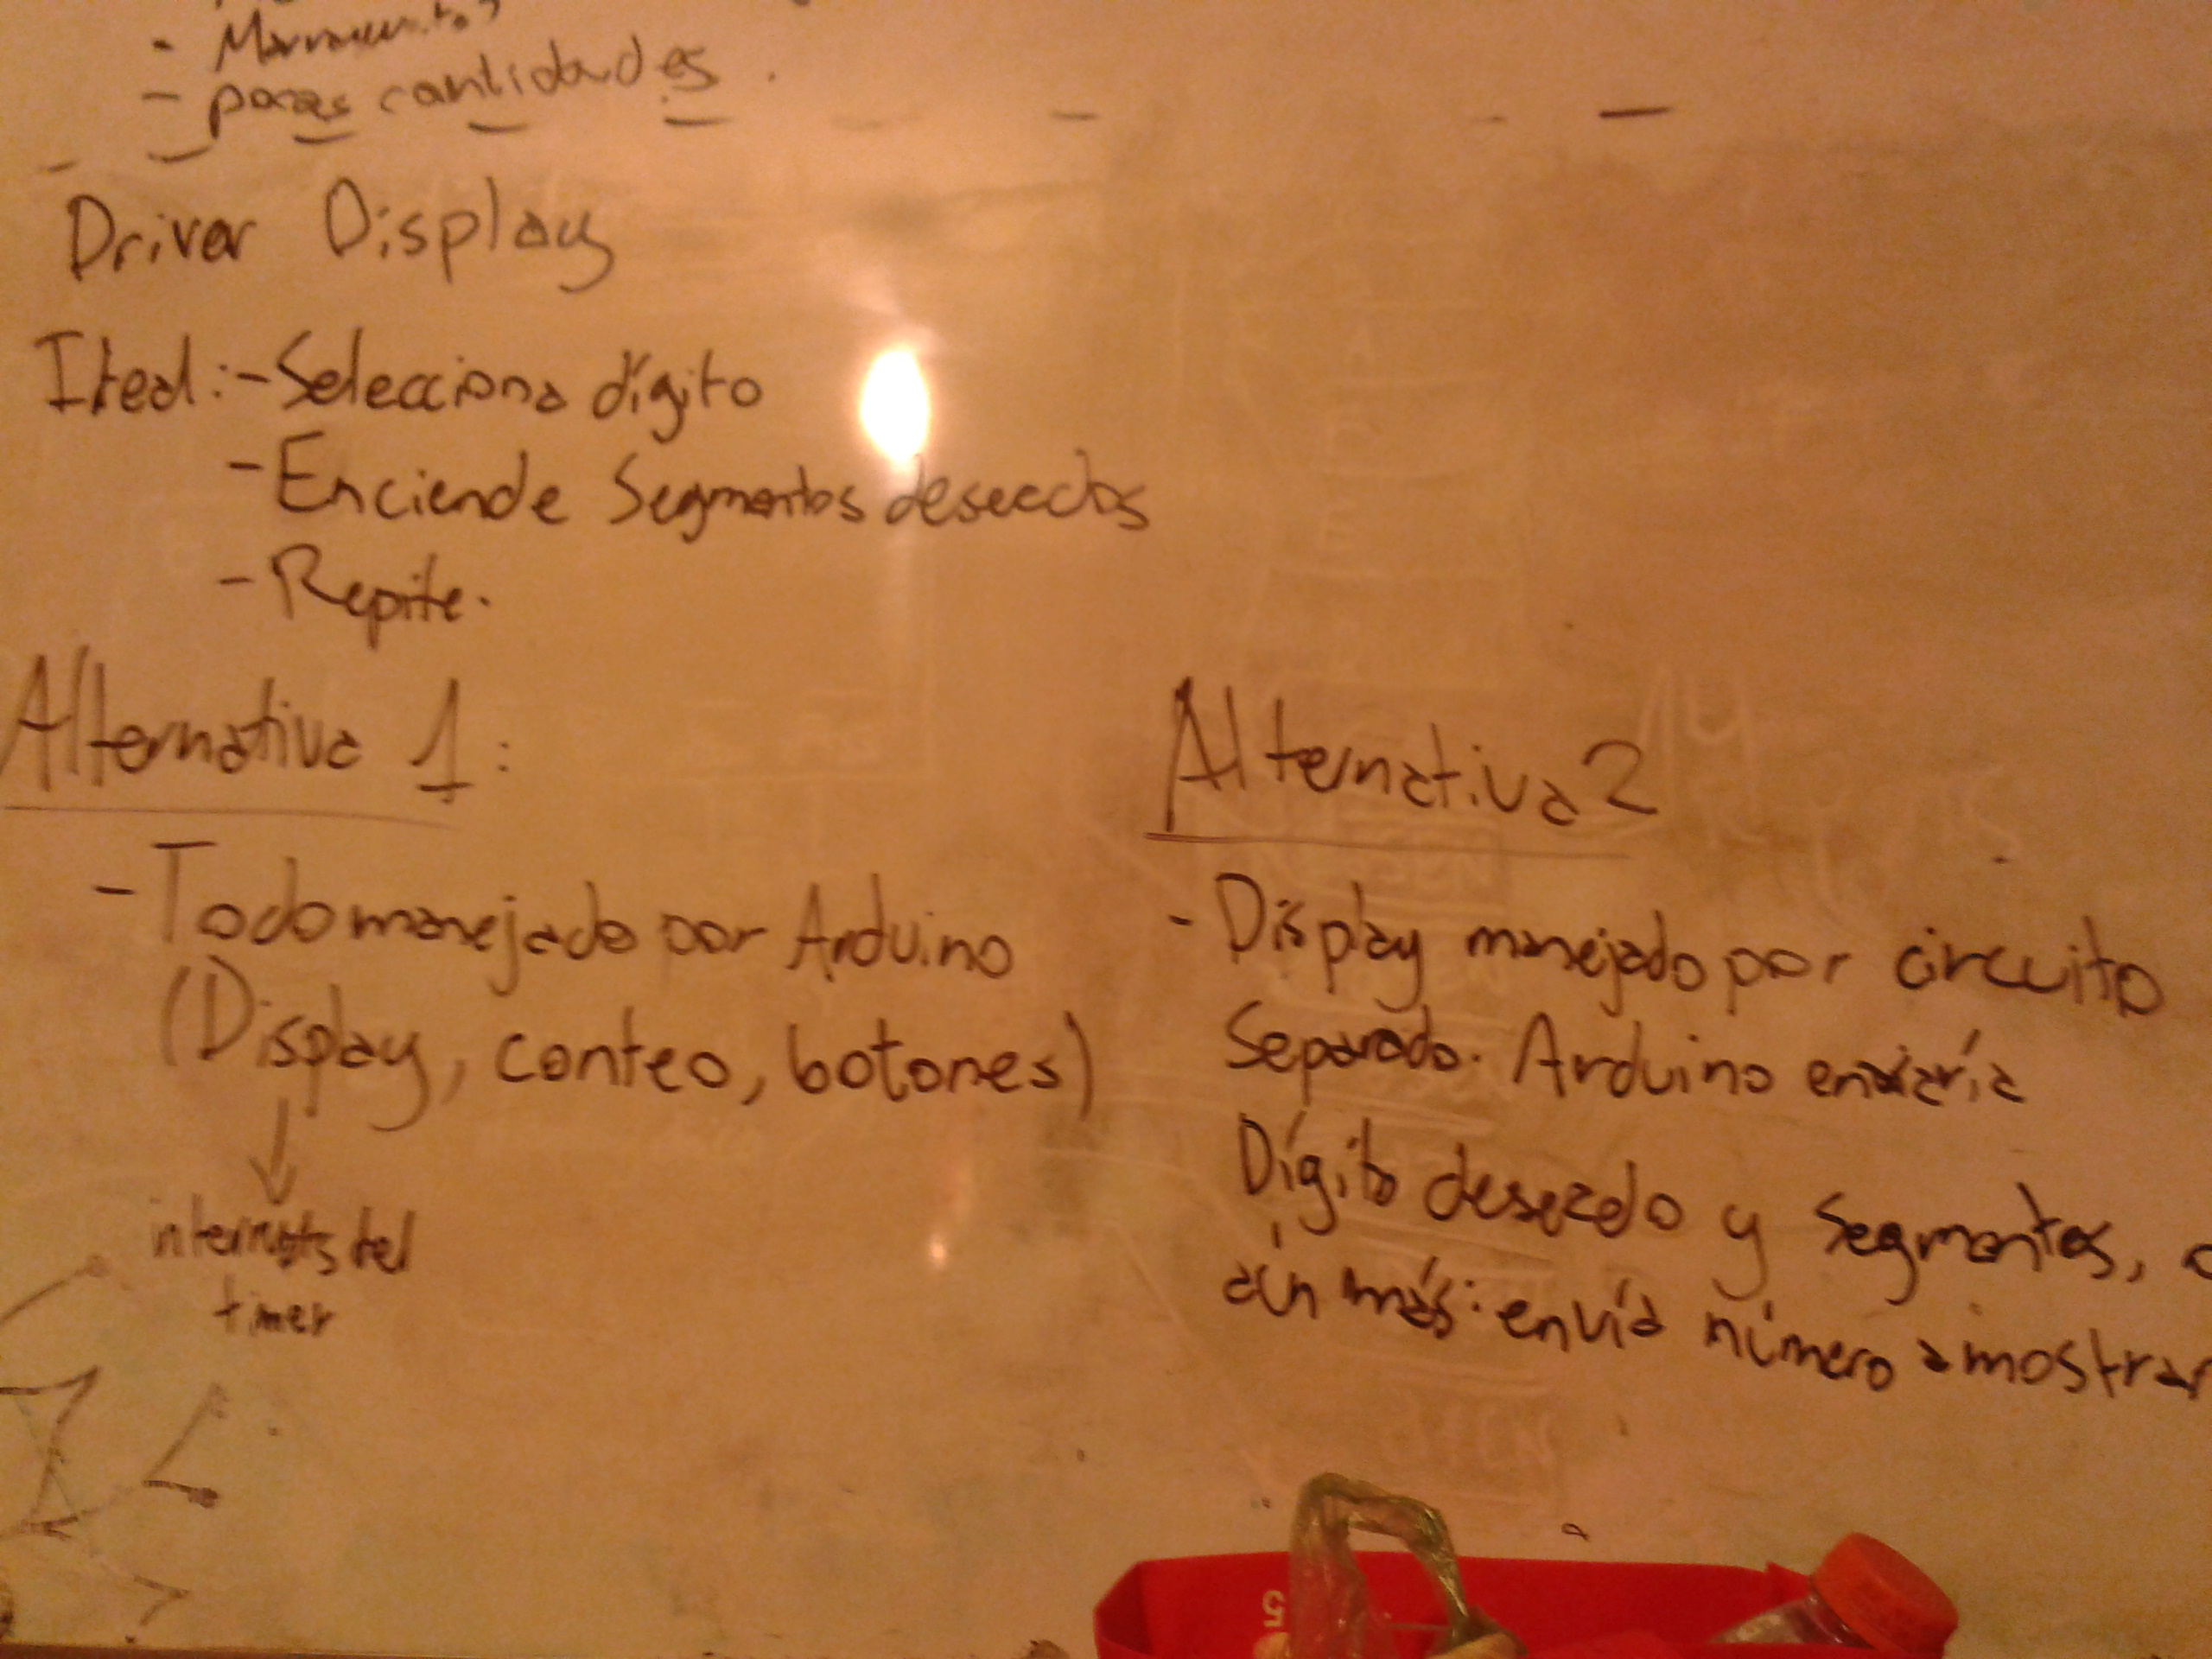 - pocas cantidades.
Driver Display
Itead:-Selecciona dígito
-Enciende Segmentos deseados
-Repite.
Alternativa 1:
Alternativa 2
-Todo manejado por Arduino
(Display, conteo, botones)
interrupts del
timer
- Display manejado por circuito
Separado. Arduino enviaría
Dígito deseado y segmentos, o
aún más: envía número a mostrar